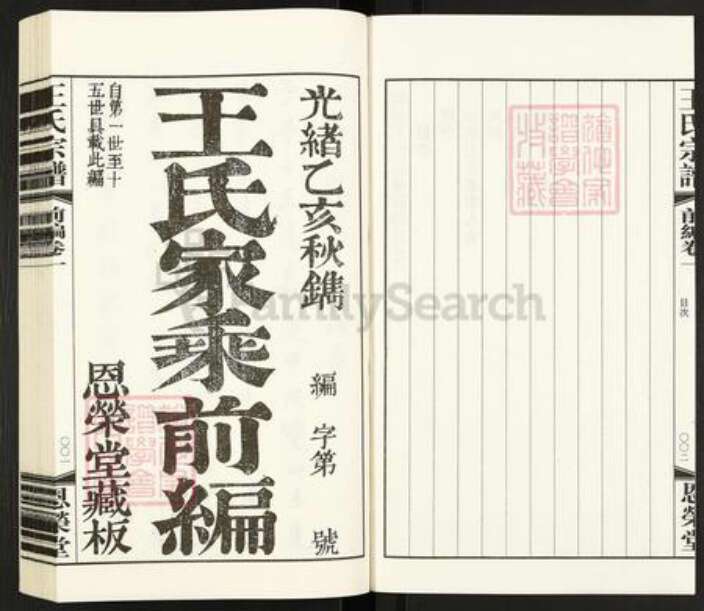 光緒乙亥秋鐫
編字第號
王氏家乘前編
自第一世至十
五世具載此編
恩榮堂藏板
王氏宗譜
前編卷一
〇〇一
恩榮堂
王氏宗譜
前編卷一
目次
〇〇二
恩榮堂
FamilySearch